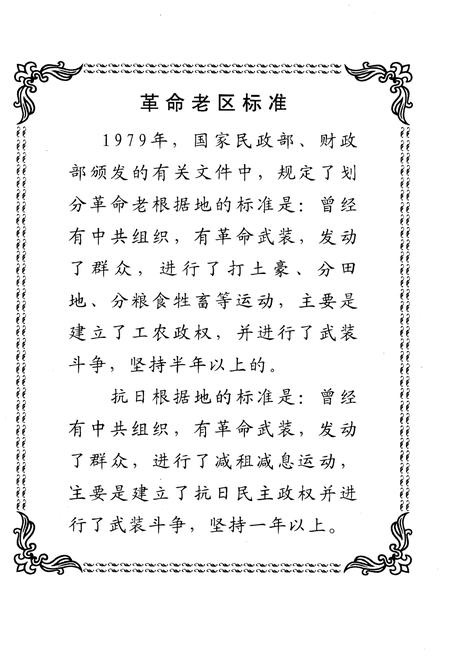 革命老区标准
1979年，国家民政部、财政
部颁发的有关文件中，规定了划
分革命老根据地的标准是：曾经
有中共组织，有革命武装，发动
了群众，进行了打土豪、分田
地、分粮食牲畜等运动，主要是
建立了工农政权，并进行了武装
斗争，坚持半年以上的。
抗日根据地的标准是：曾经
有中共组织，有革命武装，发动
了群众，进行了减租减息运动，
主要是建立了抗日民主政权并进
行了武装斗争，坚持一年以上。